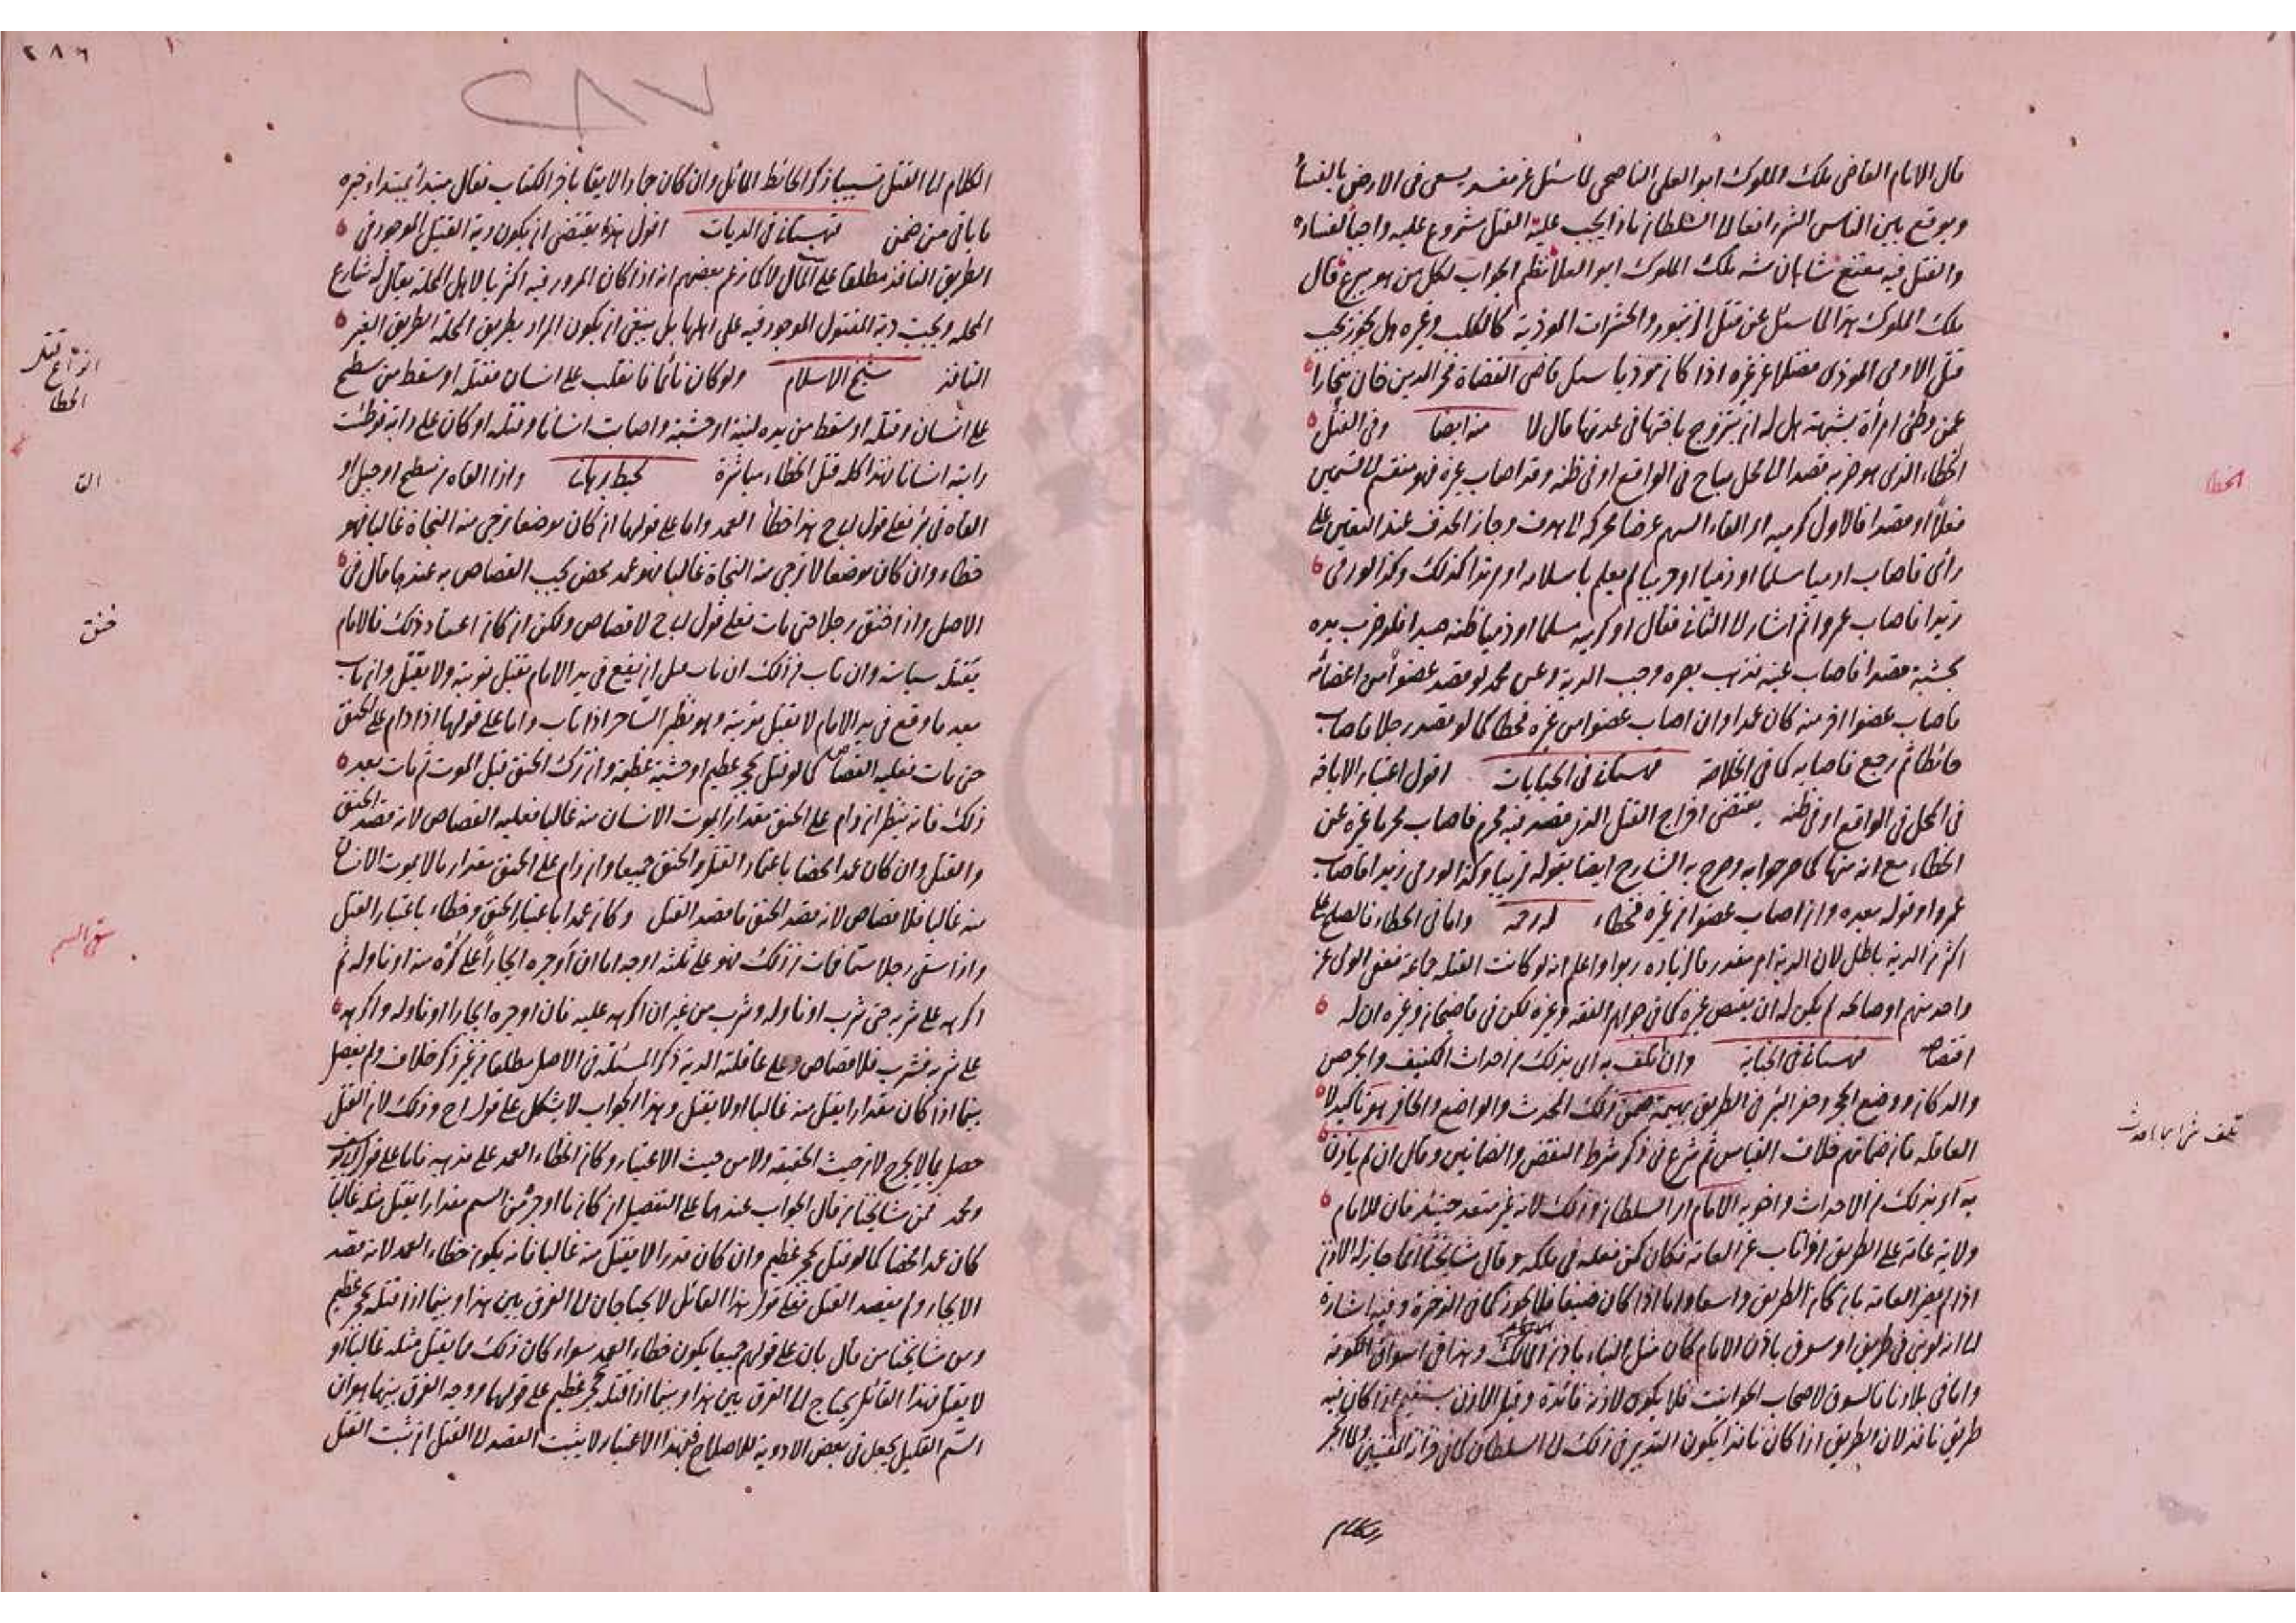 قال الامام القاضى ملك الملوك ابو العلى الناصحى لما سئل عن مفسد يسعى فى الارض بالفساد
ويوقع بين الناس الشر رافعا الى السلطان ماذا يجب عليه القتل مشروع عليه واجبا لفساده
والقتل فيه مقنع شاهان شه ملك الملوك ابو العلا نظم الجواب لكل من هو يبرع قال
ملك الملوك هذا لما سئل عن قتل الزنبور والحشرات الموذية كالكلب وغيره هل يجوز يجب
قتل الادمى الموذى فضلا عن غيره اذا كان موذيا سئل قاضى القضاة فخر الدين خان ببخارا
عمن وطئ امرأة بشبهة هل له ان يتزوج باختها فى عدتها قال لا منه ايضا وفى القتل
الخطاء الذى هو ضربه قصدا الى محل مباح فى الواقع او فى ظنه وقد اصاب غيره فهو منقسم الى قسمين
فعلا او قصدا فالاول كرميه او القاء السهم غرضا محركه الى هدف وجاز الحذف عند التعين على
رأى فاصاب ادميا مسلما او ذميا او حربيا لم يعلم باسلامه او مرتدا كذلك وكذا لو رمى
زيدا فاصاب عمروا ثم اشار الى الثانى فقال او كرميه مسلما او ذميا ظنه صيدا فلو ضرب يده
بخشبة قصدا فاصاب عينه فذهب بصره وجب الدية وعن محمد لو قصد عضوا من اعضائه
فاصاب عضوا اخر منه كان عمدا وان اصاب عضوا من غيره فخطا كما لو قصد رجلا فاصاب
حائطا ثم رجع فاصابه كما فى الخلاصة قهستانى فى الجنايات اقول اعتبار الاباحة
فى المحل فى الواقع او فى ظنه يقتضى اخراج القتل الذى قصد فيه محرم فاصاب محرما غيره عن
الخطاء مع انه منها كما صرحوا به وصرح به الشارح ايضا بقوله قريبا وكذا لو رمى زيدا فاصاب
عمروا وقوله بعده وان اصاب عضوا من غيره فخطاء له رحمه واما فى الخطاء فالصلح على
اكثر من الدية باطل لان الدية امر مقدر فالزيادة ربوا واعلم انه لو كانت القتلة جماعة فعفى الولى عن
واحد منهم او صالحه لم يكن له ان يقتص غيره كما فى جواهر الفقه وغيره لكن فى قاضيخان وغيره ان له
اقتصاصه قهستانى فى الجناية وان تلف به اى بذلك من احداث الكنيف والجرصن
والدكان ووضع الحجر وحفر البئر فى الطريق بهيمة ضمن ذلك المحدث والواضع والحافر هو تاكيد لا
العاقلة فان ضمانهم خلاف القياس ثم شرع فى ذكر شرط النقض والضمانين وقال ان لم ياذن
به اى بذلك من الاحداث واخويه الامام اى السلطان وذلك لانه غير متعد حينئذ فان للامام
ولاية عامة على الطريق اذ اناب عن العامة فكان كمن فعله فى ملكه وقال مشايخنا انما جاز له الاذن
اذا لم يضر العامة بان كان الطريق واسعا واما اذا كان ضيقا فلا يجوز كما فى الذخيرة وفيه اشارة
الى انه لو بنى فى طريق او سوق باذن الامام كان مثل البناء باذن المالك وهذا فى اسواق الكوفة
واما فى بلادنا فالسوق لاصحاب الحوانيت فلا يكون لاذنه فائدة وقيل الاذن يستقيم اذا كان فيه
طريق نافذ لان الطريق اذا كان نافذا يكون التدبير فى ذلك الى السلطان كما فى خزانة المفتيين ولما انجر
الكلام
الخطا
تلف شئ بما احدث
الكلام الى القتل تسبيبا ذكر الحائط المائل وان كان جمادا لايقا باخر الكتاب فقال مبتدأ بمبتدا وخبره
ما باقى من ضمن قهستانى فى الديات اقول هذا يقتضى ان يكون دية القتيل الموجود فى
الطريق النافذ مطلقا على المال لا كما زعم بعضهم انه اذا كان المرور فيه اكثريا لاهل المحلة يقال له شارع
المحلة ويجب دية المقتول الموجود فيه على اهلها بل ينبغى ان يكون المراد بطريق المحلة الطريق الغير
النافذ شيخ الاسلام ولو كان نائما فانقلب على انسان فقتله او سقط من سطح
على انسان وقتله او سقط من يده لبنة او خشبة واصابت انسانا وقتله او كان على دابة فوطئت
دابته انسانا فهذا كله قتل الخطاء مباشرة محيط برهانى واذا القاه من سطح او جبل او
القاه فى بئر فعلى قول ابى ح هذا خطأ العمد واما على قولهما ان كان موضعا ترجى منه النجاة غالبا فهو
خطاء وان كان موضعا لا ترجى منه النجاة غالبا فهو عمد محض يجب القصاص به عندهما قال فى
الاصل واذا خنق رجلا حتى مات فعلى قول ابى ح لا قصاص ولكن ان كان اعتاد ذلك فالامام
يقتله سياسة وان تاب من ذلك ان تاب قبل ان يقع فى يد الامام تقبل توبته ولا يقتل وان تاب
بعد ما وقع فى يد الامام لا تقبل توبته وهو نظير الساحر اذا تاب واما على قولهما اذا دام على الخنق
حتى مات فعليه القصاص كما لو قتل بحجر عظيم او خشبة عظيمة وان ترك الخنق قبل الموت ثم مات بعد
ذلك فانه ينظر ان دام على الخنق مقدارا يموت الانسان منه غالبا فعليه القصاص لانه قصد الخنق
والقتل وان كان عمدا محضا باعتبار القتل والخنق جميعا وان دام على الخنق مقدار ما لا يموت الانسان
منه غالبا فلا قصاص لانه قصد الخنق ما قصد القتل وكان عمدا باعتبار الخنق وخطاء باعتبار القتل
واذا سقى رجلا سما فمات من ذلك فهو على ثلثة اوجه اما ان أوجره ايجاراً على كُرْه منه او ناوله ثم
اكرهه على شربه حتى شرب او ناوله وشرب من غير ان اكرهه عليه فان اوجره ايجارا او ناوله واكرهه
على شربه فشرب فلا قصاص وعلى عاقلته الدية ذكر المسئلة فى الاصل مطلقا من غير ذكر خلاف ولم يفصل
بينما اذا كان مقدارا يقتل منه غالبا او لا يقتل وهذا الجواب لا يشكل على قول ابى ح وذلك لان القتل
حصل بما لا يجرح لا من حيث الحقيقة ولا من حيث الاعتبار وكان الخطاء العمد على مذهبه فاما على قول ابى يوسف
ومحمد فمن مشايخنا من قال الجواب عندهما على التفصيل ان كان ما اوجر من السم مقدارا يقتل مثله غالبا
كان عمدا محضا كما لو قتل بحجر عظيم وان كان قدرا لا يقتل منه غالبا فانه يكون خطاء العمد لانه قصد
الايجار ولم يقصد القتل فعلى قول هذا القائل لا يحتاجان الى الفرق بين هذا وبينما اذا قتله بحجر عظيم
ومن مشايخنا من قال بان على قولهم جميعا يكون خطاء العمد سواء كان ذلك مما يقتل مثله غالبا او
لا يقتل فهذا القائل يحتاج الى الفرق بين هذا وبينما اذا قتله بحجر عظيم على قولهما ووجه الفرق بينهما هو ان
السم القليل يجعل فى بعض الادوية للاصلاح فبهذا الاعتبار لا يثبت القصد الى القتل ان ثبت القتل
٢٨٦
٢٨٧
انواع قتل
الخطا
خنق
سقى السم